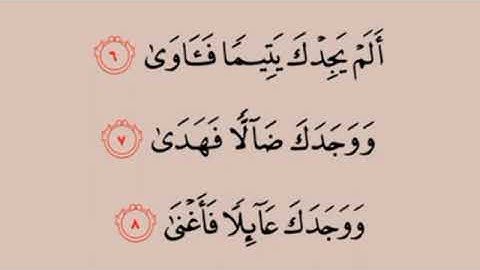 أَلَمْ يَجِدْكَ يَتِيمًا فَـَٔاوَىٰ ٦
وَوَجَدَكَ ضَآلًّا فَهَدَىٰ ٧
وَوَجَدَكَ عَآئِلًا فَأَغْنَىٰ ٨